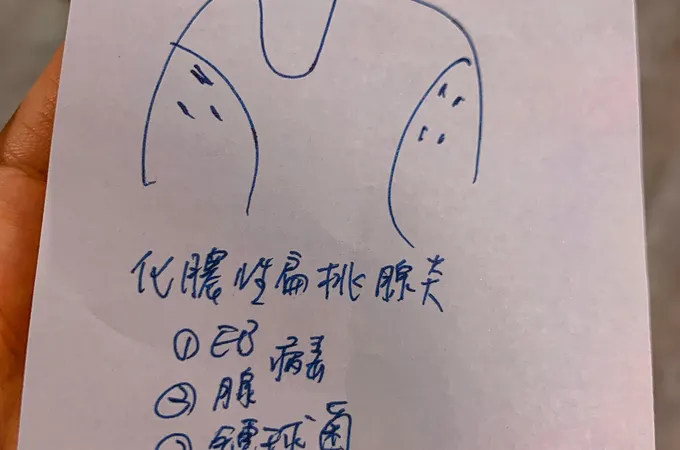 化膿性扁桃腺炎
① EB 病毒
② 腺
③ 鏈球菌